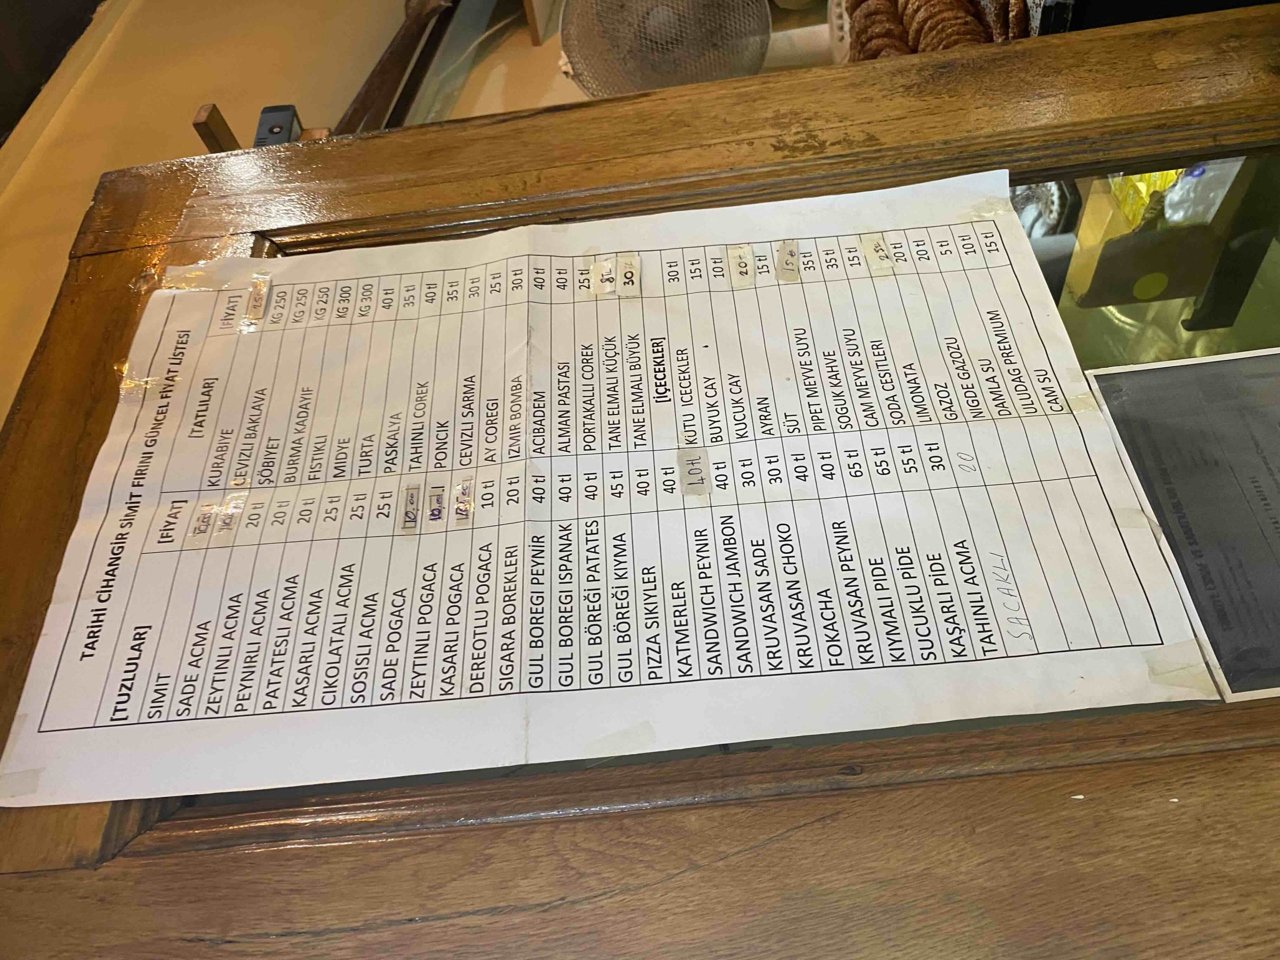 TARIHI CIHANGIR SIMIT FIRINI GÜNCEL FİYAT LİSTESİ
[TUZLULAR] [FİYAT] [TATLILAR] [FİYAT]
SIMIT 10.00 KURABIYE 250
SADE ACMA CEVIZLI BAKLAVA KG 250
ZEYTINLI ACMA 20 tl ŞÖBIYET KG 250
PEYNIRLI ACMA 20 tl BURMA KADAYIF KG 250
PATATESLI ACMA 20 tl FISTIKLI KG 300
KASARLI ACMA 25 tl MIDYE KG 300
CIKOLATALI ACMA 25 tl TURTA 40 tl
SOSISLI ACMA 25 tl PASKALYA 35 tl
SADE POGACA 10.00 TAHINLI COREK 40 tl
ZEYTINLI POGACA 10.00 PONCIK 35 tl
KASARLI POGACA 12.50 CEVIZLI SARMA 30 tl
DEREOTLU POGACA 10 tl AY COREGI 25 tl
SIGARA BOREKLERI 20 tl IZMIR BOMBA 30 tl
GUL BOREGI PEYNIR 40 tl ACIBADEM 40 tl
GUL BOREGI ISPANAK 40 tl ALMAN PASTASI 40 tl
GUL BÖREĞİ PATATES 40 tl PORTAKALLI COREK 25 tl
GUL BÖREĞİ KIYMA 45 tl TANE ELMALI KÜÇÜK 8tl
PIZZA SIKIYLER 40 tl TANE ELMALI BÜYÜK 30
KATMERLER 40 tl [İÇECEKLER]
SANDWICH PEYNIR 40tl KUTU ICECEKLER 30 tl
SANDWICH JAMBON 40 tl BUYUK CAY 15 tl
KRUVASAN SADE 30 tl KUCUK CAY 10 tl
KRUVASAN CHOKO 30 tl AYRAN 20 tl
FOKACHA 40 tl SÜT 15 tl
KRUVASAN PEYNIR 40 tl PIPET MEYVE SUYU 15 tl
KIYMALI PIDE 65 tl SOGUK KAHVE 35 tl
SUCUKLU PİDE 65 tl CAM MEYVE SUYU 35 tl
KAŞARLI PİDE 55 tl SODA CESITLERI 15 tl
TAHINLI ACMA 30 tl LIMONATA 25tl
SACAKLI 20 GAZOZ 20 tl
NIGDE GAZOZU 20 tl
DAMLA SU 5 tl
ULUDAG PREMIUM 10 tl
CAM SU 15 tl